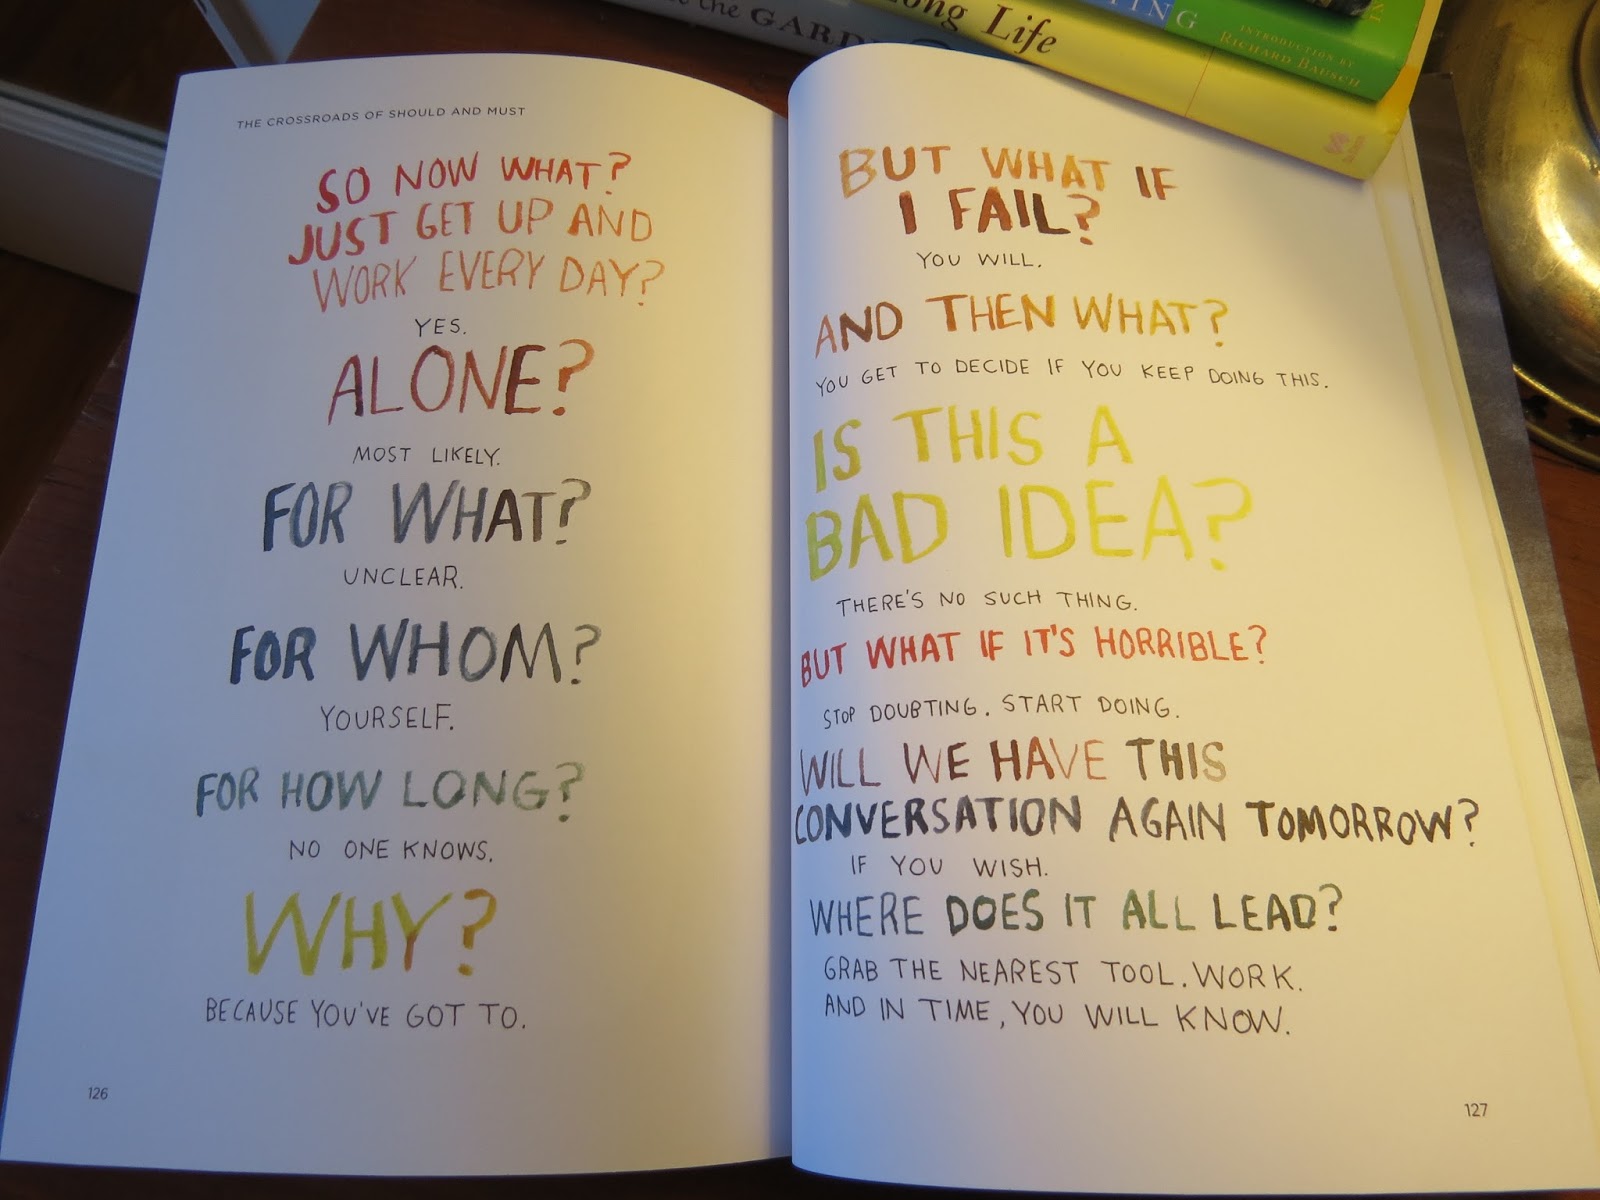 THE GARD
Long Life
TING
INTRODUCTION BY
RICHARD BAUSCH
THE CROSSROADS OF SHOULD AND MUST
SO NOW WHAT?
JUST GET UP AND
WORK EVERY DAY?
YES.
ALONE?
MOST LIKELY.
FOR WHAT?
UNCLEAR.
FOR WHOM?
YOURSELF.
FOR HOW LONG?
NO ONE KNOWS.
WHY?
BECAUSE YOU'VE GOT TO.
126
BUT WHAT IF
I FAIL?
YOU WILL.
AND THEN WHAT?
YOU GET TO DECIDE IF YOU KEEP DOING THIS.
IS THIS A
BAD IDEA?
THERE'S NO SUCH THING.
BUT WHAT IF IT'S HORRIBLE?
STOP DOUBTING. START DOING.
WILL WE HAVE THIS
CONVERSATION AGAIN TOMORROW?
IF YOU WISH.
WHERE DOES IT ALL LEAD?
GRAB THE NEAREST TOOL. WORK.
AND IN TIME, YOU WILL KNOW.
127